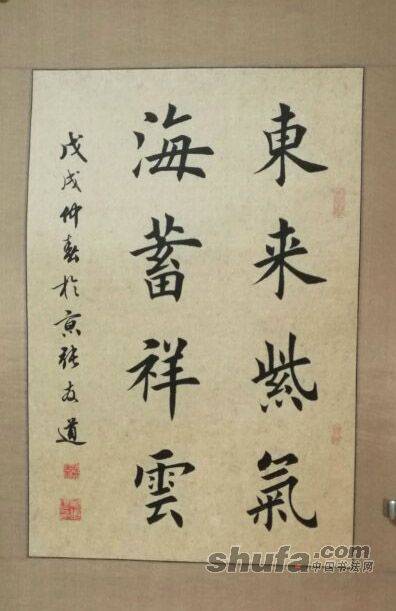 東来紫氣
海蓄祥雲
戊戌仲春於京張友道
shufa.com
中国书法网